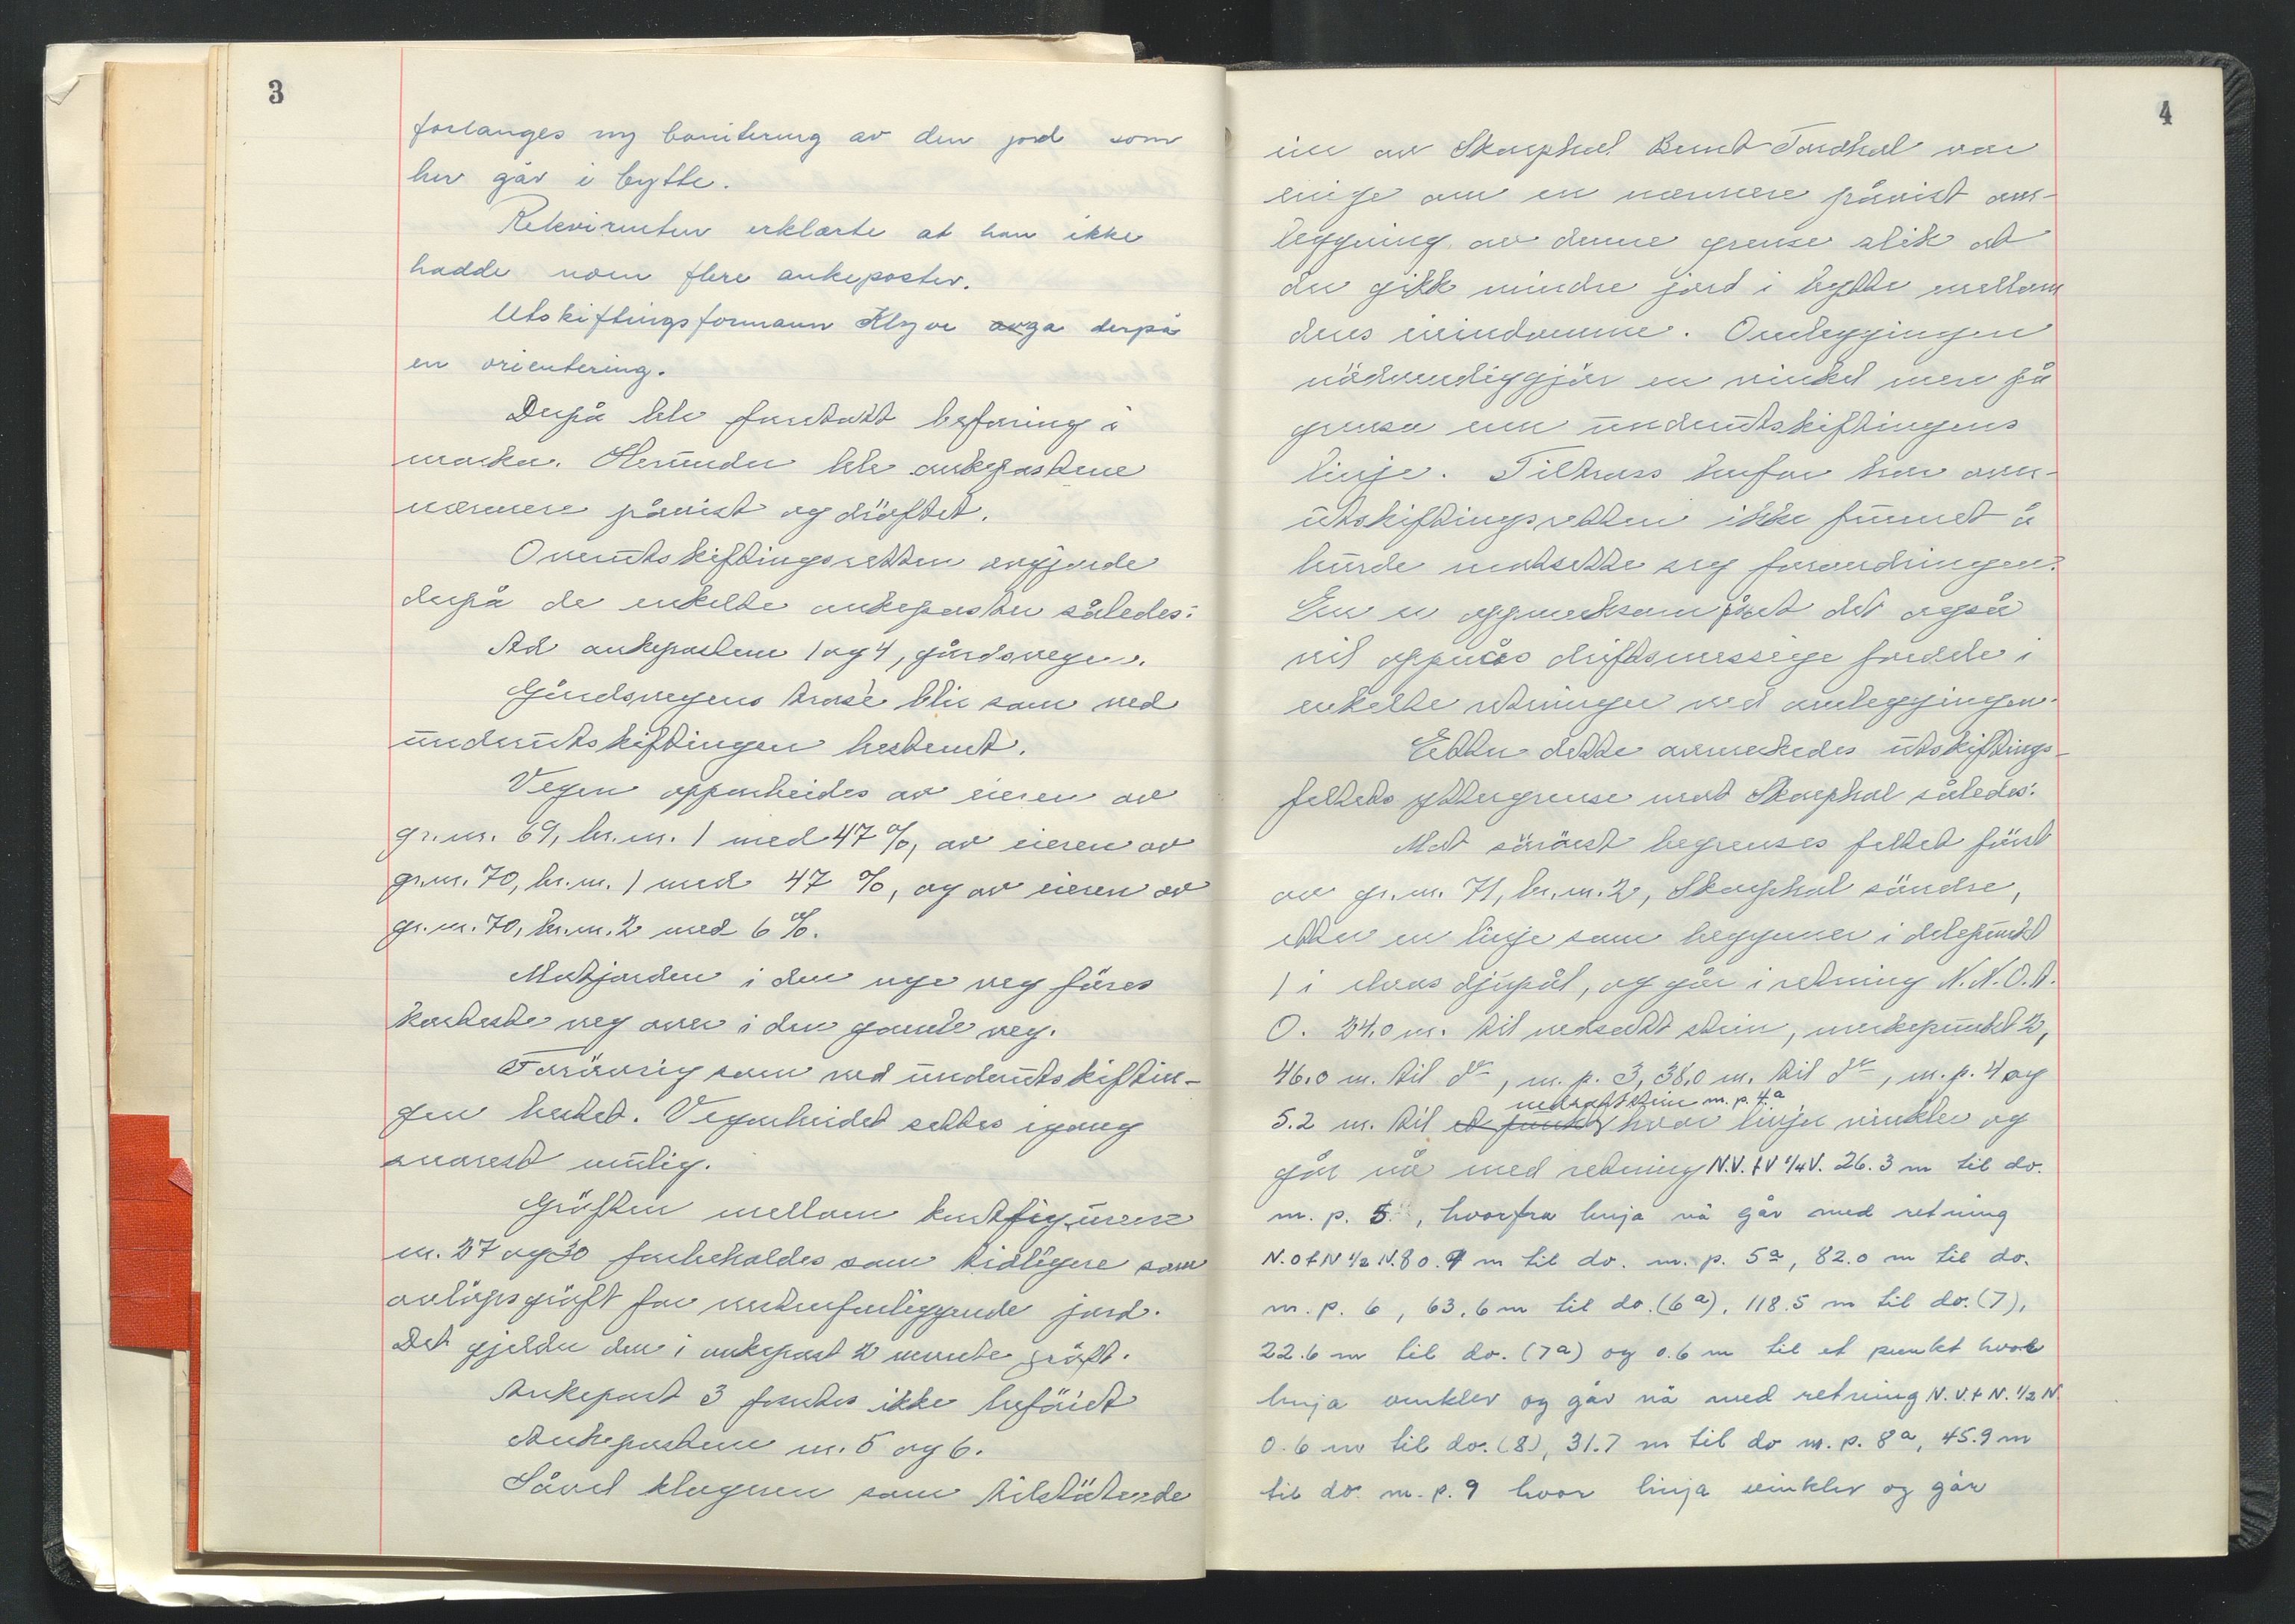 3
forlanges ny bonitering av den jord som
her går i bytte.
Rekvirenten erklærte at han ikke
hadde noen flere ankeposter.
Utskiftingsformann Klyve avga derpå
en orientering.
Derpå ble foretatt befaring i
marka. Herunder ble ankepostene
nærmere påvist og drøftet.
Overutskiftingsretten avgjorde
derpå de enkelte ankeposter således:
Ad ankepostene 1 og 4, gårdsvegen.
Gårdsvegens trasè blir som ved
underutskiftingen bestemt.
Vegen opparbeides av eieren av
gr.nr. 69, br.nr. 1 med 47 %, av eieren av
gr.nr. 70, br.nr. 1 med 47 %, og av eieren av
gr.nr. 70, br.nr. 2 med 6 %.
Matjorden i den nye veg føres
korteste veg over i den gamle veg.
Forøvrig som ved underutskiftin-
gen bestemt. Vegarbeidet settes igang
snarest mulig.
Grøften mellom teigfigurene
nr. 27 og 30 forbeholdes som tidligere som
avløpsgrøft for ovenforliggende jord.
Det gjelder den i ankepost 2 nevnte grøft.
Ankepost 3 fantes ikke beføiet
Ankepostene nr. 5 og 6.
Såvel klageren som tilstøtende
4
eier av Skarphol Bernt Fordhol var
enige om en nærmere påvist om-
legging av denne grense slik at
der gikk mindre jord i bytte mellom
deres eiendomme. Omleggingen
nødvendiggjør en vinkel mere på
grensa enn underutskiftingens
linje. Tiltross herfor har over-
utskiftingsretten ikke funnet å
burde motsette seg forandringen.
En er oppmerksom på at det også
vil oppnåes driftsmessige fordele i
enkelte retninger ved omleggingen.
Etter dette avmerkedes utskiftings-
feltets yttergrense mot Skarphol således:
Mot sørøst begrenses feltet først
av gr.nr. 71, br.nr. 2, Skarphol søndre,
etter en linje som begynner i delepunkt
1 i elvas djupål, og går i retning N.N.O.t.
O. 24,0 m. til nedsatt stein, merkepunkt 2,
46,0 m. til do, m.p. 3, 38,0 m. til do, m.p. 4 og
5.2 m. til et punkt nedsatt stein m.p. 4a hvor linjer vinkler og
går nå med retning N.V.tV 1/4 V. 26.3 m til do.
m. p. 5., hvorfra linja nå går med retning
N.O t N 1/2 N. 80.9 m til do. m. p. 5a, 82.0 m til do.
m. p. 6, 63.6 m til do. (6a), 118.5 m til do. (7),
22.6 m til do. (7a) og 0.6 m til et punkt hvor
linja vinkler og går nå med retning N.V. t N. 1/2 N
0.6 m til do. (8), 31.7 m til do m. p. 8a, 45.9 m
til do. m. p. 9 hvor linja vinkler og går